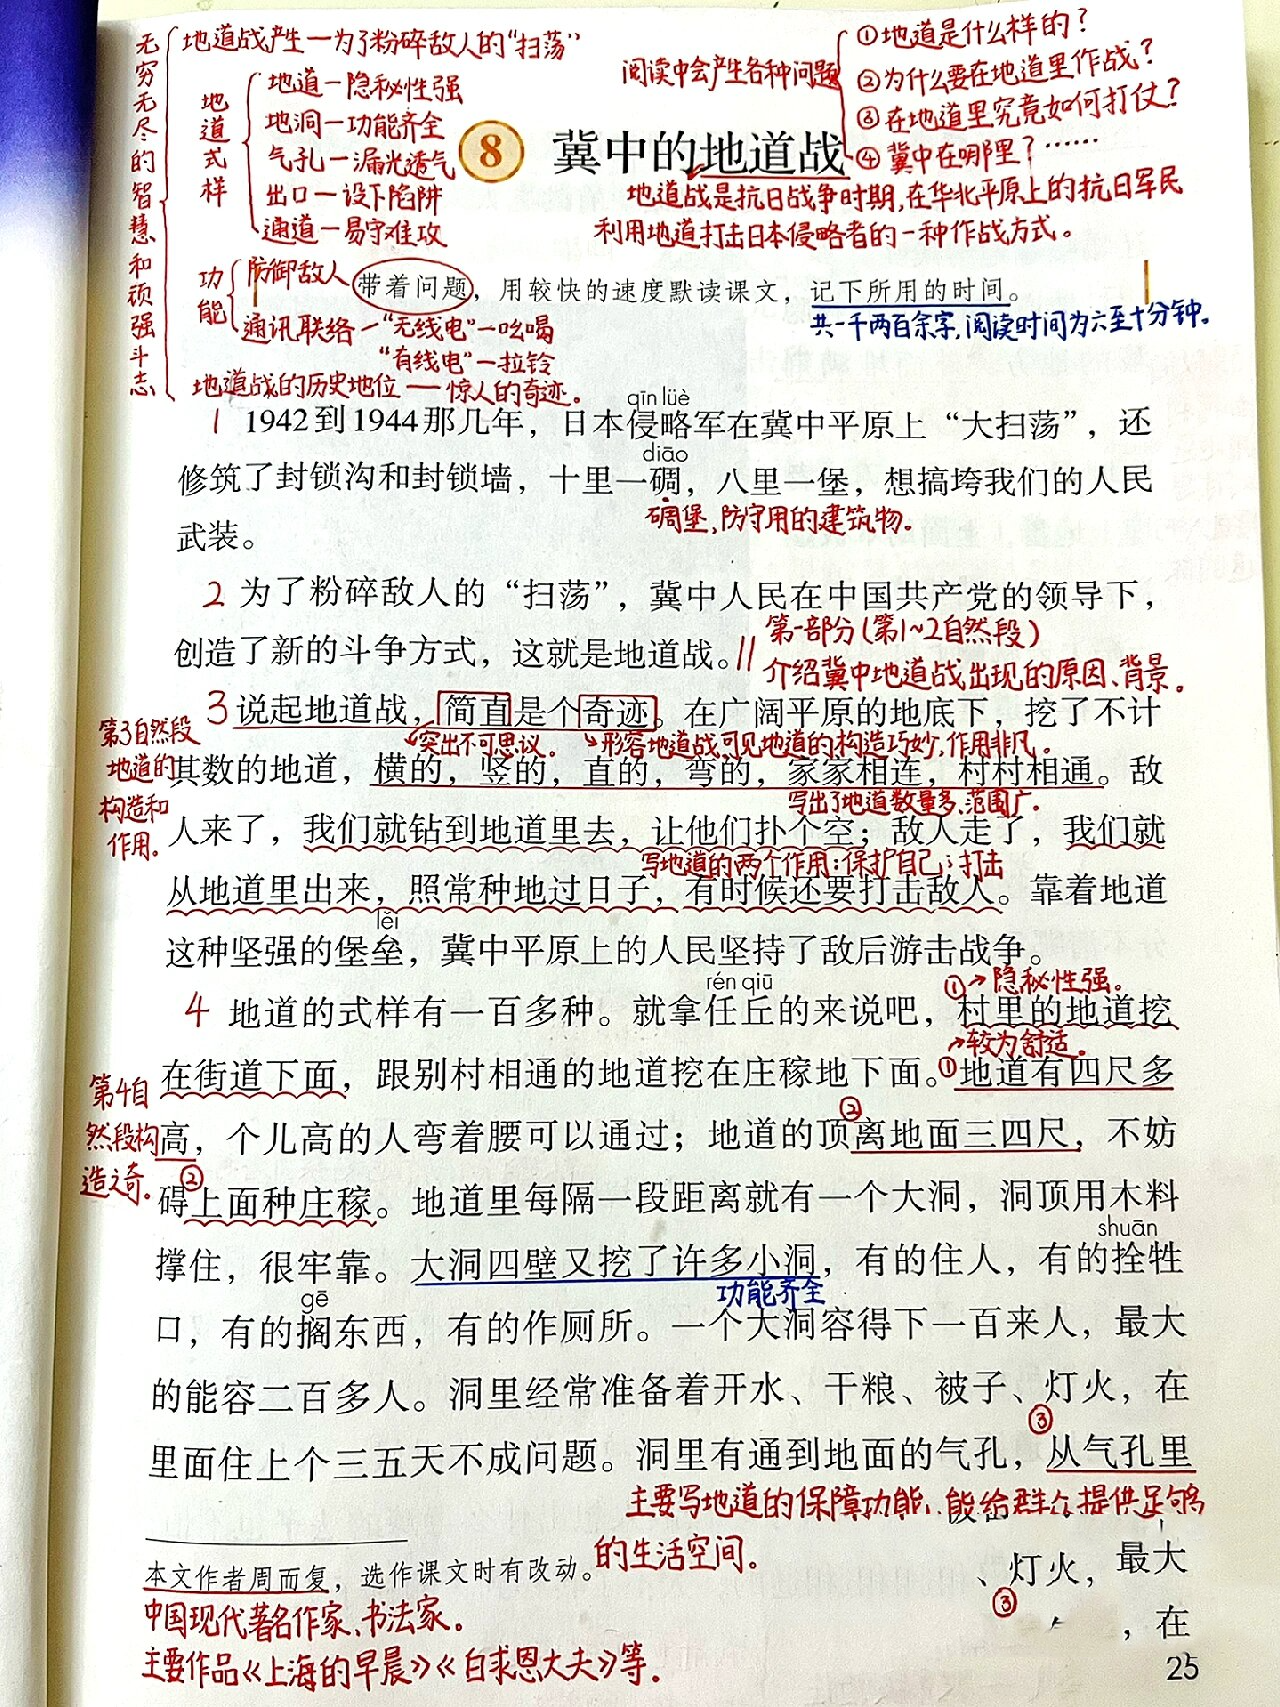 无穷无尽的智慧和顽强斗志
地道战产生—为了粉碎敌人的“扫荡”
地道式样
地道—隐秘性强
地洞—功能齐全
气孔—漏光透气
出口—设下陷阱
通道—易守难攻
功能
防御敌人
通讯联络—“无线电”—吆喝
“有线电”—拉铃
地道战的历史地位——惊人的奇迹。
阅读中会产生各种问题
①地道是什么样的？
②为什么要在地道里作战？
③在地道里究竟如何打仗？
④冀中在哪里？……
8 冀中的地道战
地道战是抗日战争时期,在华北平原上的抗日军民
利用地道打击日本侵略者的一种作战方式。
带着问题，用较快的速度默读课文，记下所用的时间。
共一千两百余字,阅读时间为六至十分钟。
qīn lüè
1 1942到1944那几年，日本侵略军在冀中平原上“大扫荡”，还
diāo
修筑了封锁沟和封锁墙，十里一碉，八里一堡，想搞垮我们的人民
碉堡,防守用的建筑物。
武装。
2 为了粉碎敌人的“扫荡”，冀中人民在中国共产党的领导下，
创造了新的斗争方式，这就是地道战。
第一部分(第1~2自然段)
介绍冀中地道战出现的原因、背景。
3 说起地道战，简直是个奇迹。在广阔平原的地底下，挖了不计
突出不可思议。
形容地道战可见地道的构造巧妙,作用非凡。
第3自然段
地道的
构造和
作用。
其数的地道，横的，竖的，直的，弯的，家家相连，村村相通。敌
写出了地道数量多、范围广。
人来了，我们就钻到地道里去，让他们扑个空；敌人走了，我们就
写地道的两个作用:保护自己;打击
从地道里出来，照常种地过日子，有时候还要打击敌人。靠着地道
lěi
这种坚强的堡垒，冀中平原上的人民坚持了敌后游击战争。
rén qiū
①→隐秘性强。
4 地道的式样有一百多种。就拿任丘的来说吧，村里的地道挖
→较为舒适。
在街道下面，跟别村相通的地道挖在庄稼地下面。①地道有四尺多
第4自
然段构
造之奇。
②
高，个儿高的人弯着腰可以通过；地道的顶离地面三四尺，不妨
②
碍上面种庄稼。地道里每隔一段距离就有一个大洞，洞顶用木料
shuān
撑住，很牢靠。大洞四壁又挖了许多小洞，有的住人，有的拴牲
功能齐全
gē
口，有的搁东西，有的作厕所。一个大洞容得下一百来人，最大
的能容二百多人。洞里经常准备着开水、干粮、被子、灯火，在
③
里面住上个三五天不成问题。洞里有通到地面的气孔，从气孔里
主要写地道的保障功能、能给群众提供足够
的生活空间。
本文作者周而复，选作课文时有改动。
中国现代著名作家、书法家。
主要作品《上海的早晨》《白求恩大夫》等。
、灯火，最大
③
，在
25